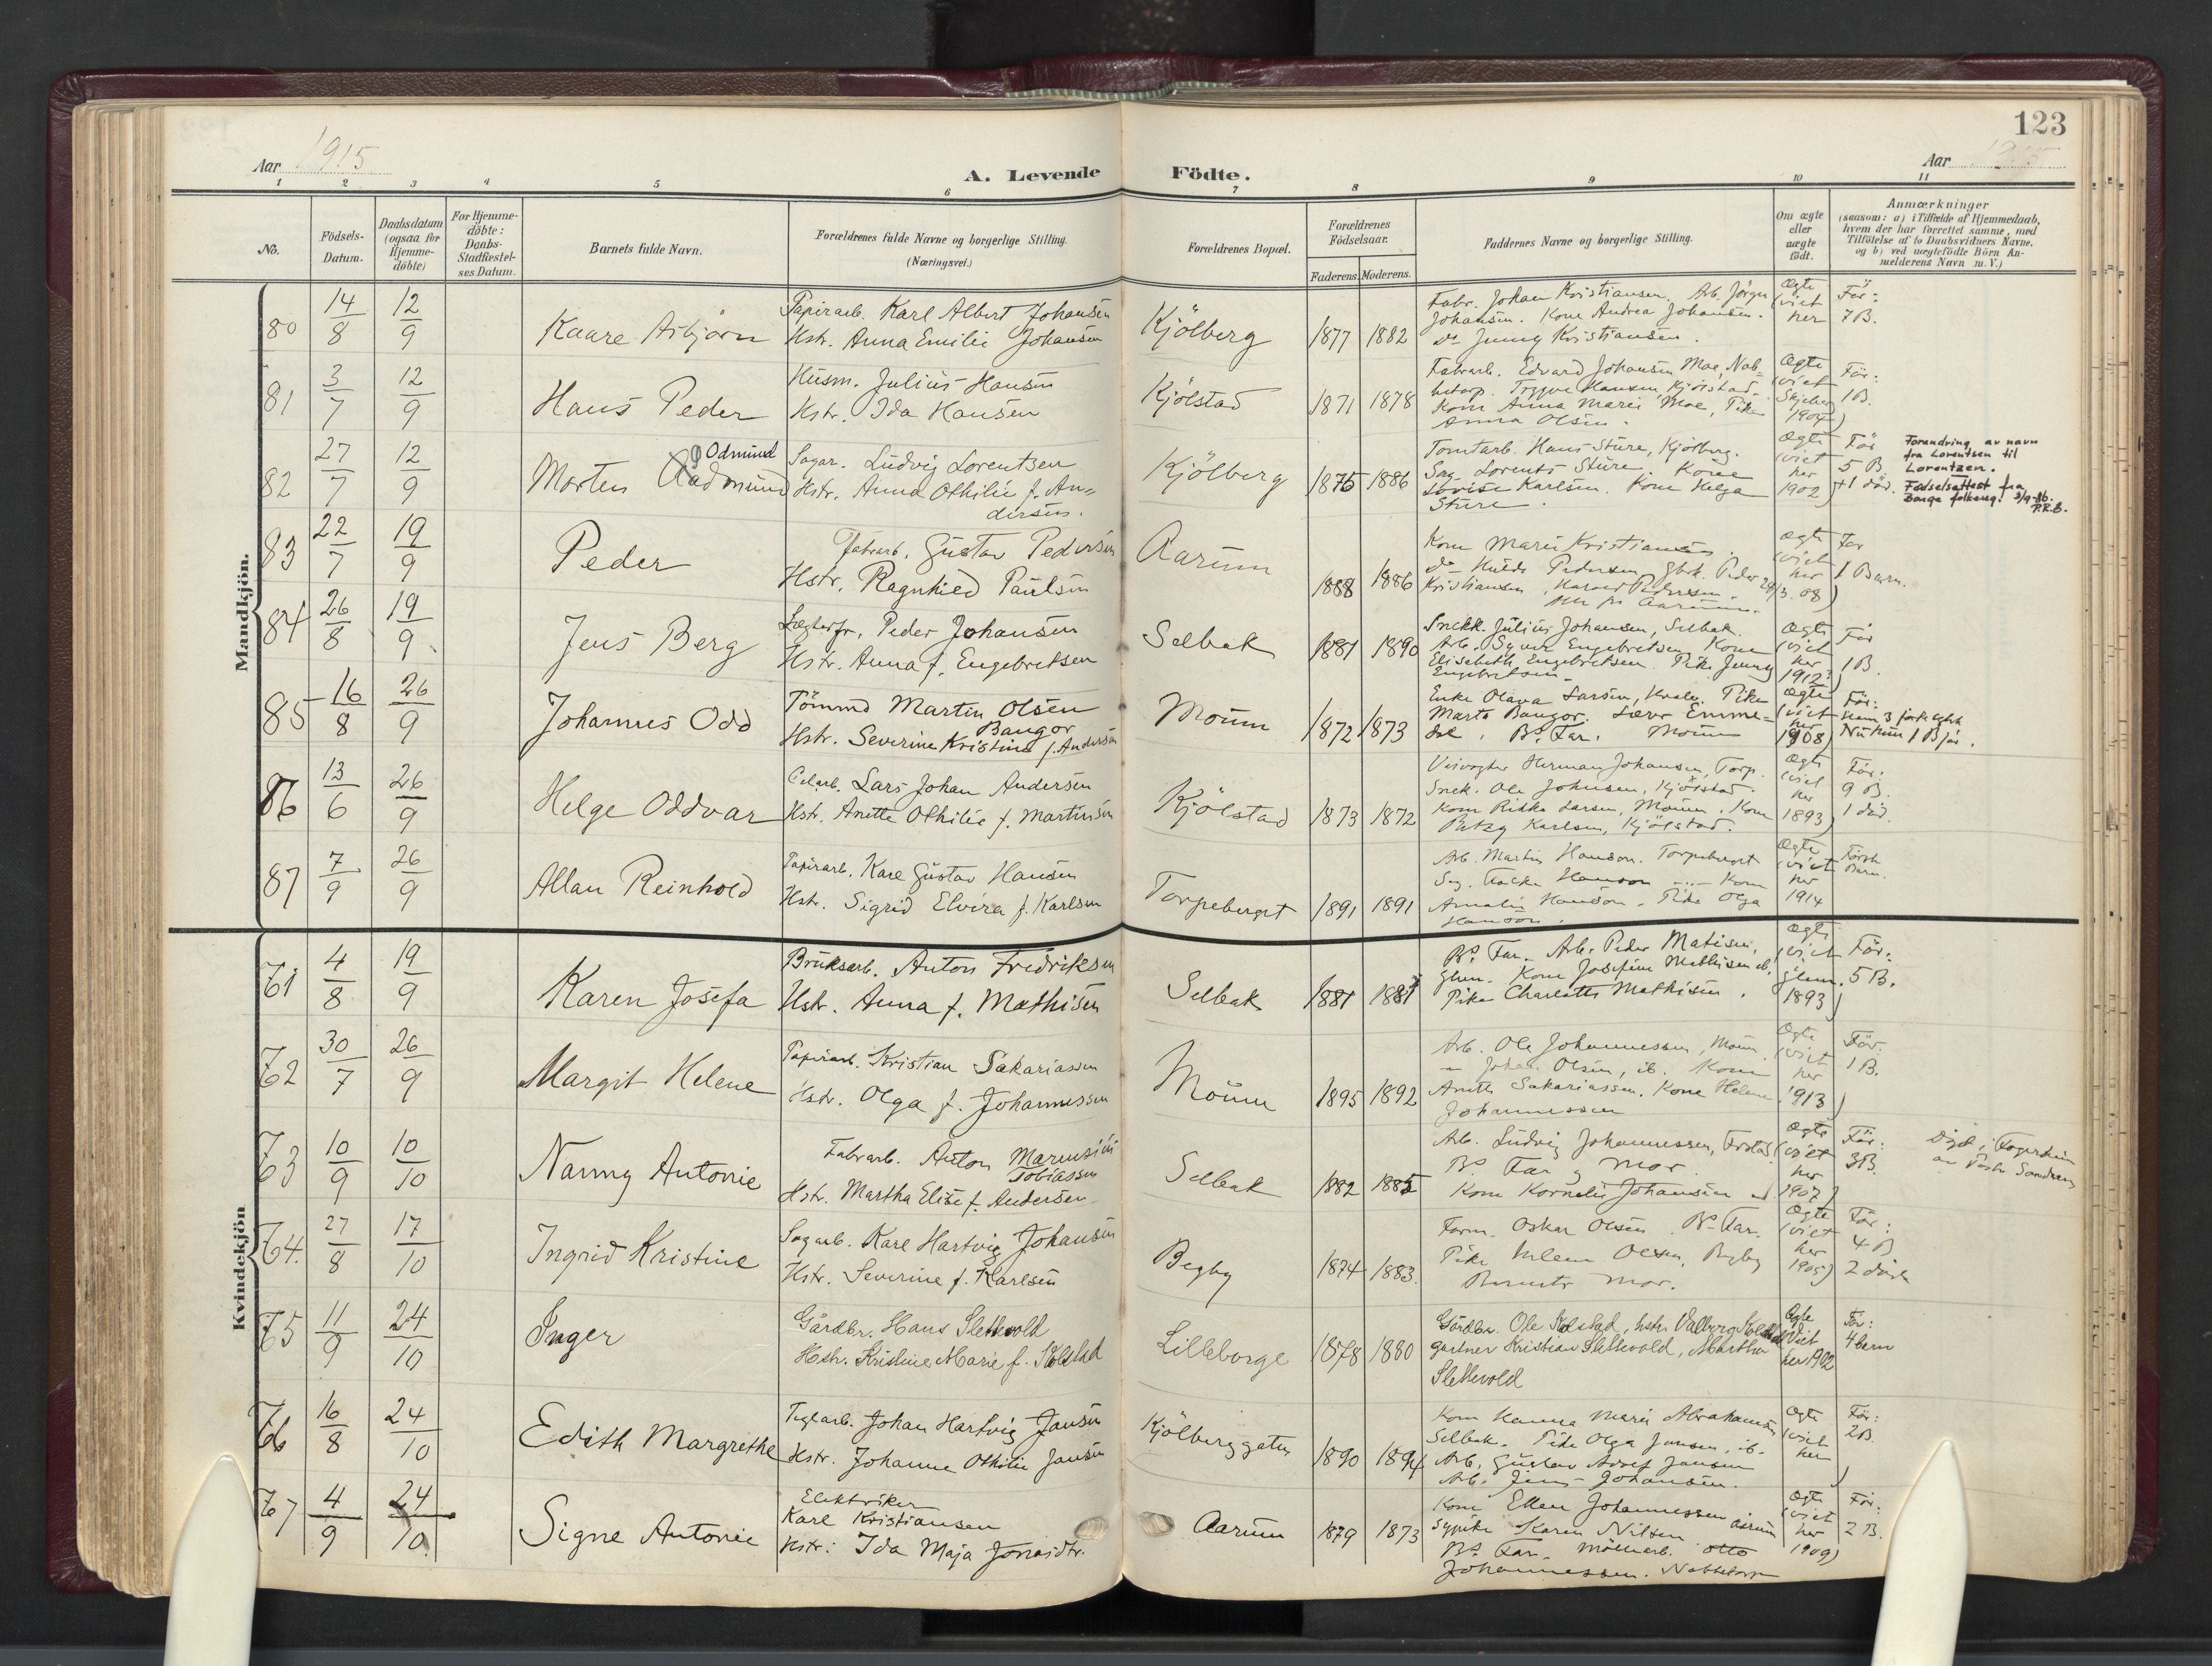 123
Aar 1915
A. Levende Födte.
Aar 1915
1 2 3 4 5 6 7 8 9 10 11
No.
Födsels-
Datum.
Daabsdatum
(ogsaa for
Hjemme-
döbte)
For Hjemme-
döbte:
Daabs-
Stadfæstel-
ses Datum.
Barnets fulde Navn.
Forældrenes fulde Navne og borgerlige Stilling.
(Næringsvei.)
Forældrenes Bopæl.
Forældrenes
Födselsaar.
Faderens. Moderens.
Faddernes Navne og borgerlige Stilling.
Om ægte
eller
uægte
födt.
Anmærkninger
(saasom: a) i Tilfælde af Hjemmedaab,
hvem der har forrettet samme, med
Tilføielse af to Daabsvidners Navne.
og b) ved uægtefödte Börn An-
melderens Navn m. V.)
Mandkjön.
80 14/8 12/9 Kaare Asbjørn
Papirarb. Karl Albert Johansen
Hstr. Anna Emilie Johansen
Kjölberg 1877 1882
Fabr. Johan Kristiansen. Arb. Jörgen
Johansen. Kone Andrea Johansen.
Do Jenny Kristiansen.
Ægte
viet
her
Før:
7 B.
81 3/7 12/9 Hans Peder
Husm. Julius Hansen
Hstr. Ida Hansen
Kjölstad 1871 1878
Fabrarb. Edvard Johansen Moe, Nab-
betorp. Trygve Hansen, Kjölstad.
Kone Anna Marie Moe, Pike
Anna Olsen.
Ægte
(viet
Skjeberg
1904)
Før:
1 B.
82 27/7 12/9 Morten Aadmund
Odmund
Sagar. Ludvig Lorentsen
Hstr. Anna Othilie f. An-
dersen.
Kjölberg 1875 1886
Tomtarb. Hans Sture, Kjölberg.
Sag. Lorents Sture. Kone
Lovise Karlsen. Kone Helga
Sture.
Ægte
(viet
her
1902)
Før
5 B.
+1 død.
Forandring av navn
fra Lorentsen til
Lorentzen.
Fødselsattest fra
Borge folkereg. 3/9-86.
P.R.B.
83 22/7 19/9 Peder
Fabrarb. Gustav Pedersen
Hstr. Ragnhild Paulsen
Aarum 1888 1886
Kone Marie Kristiansen.
Do Hulda Pedersen, Gbrk. Peder
Kristiansen, Harald Pedersen.
Alle på Aarum.
Ægte
(viet
her
29/3. 08)
Før
1 Barn.
84 26/8 19/9 Jens Berg
Peder Johansen
Hstr. Anna f. Engebretsen
Selbak 1881 1890
Snekk. Julius Johansen, Selbak.
Arb. Syver Engebretsen, Kone
Elisabeth Engebretsen. Pike Jenny
Engebretsen.
Ægte
(viet
her
1912)
Før
1 B.
85 16/8 26/9 Johannes Odd
Tömmd Martin Olsen
Bangor
Hstr. Severine Kristine f. Andersen
Moum 1872 1873
Enke Olava Larsen, Pike
Marta Bangor. Lærer Emme-
Bs. Far. Moum
Ægte
(viet
her
1908)
Før:
86 13/6 26/9 Helge Oddvar
Lars Johan Andersen
Hstr. Anette Othilie f. Martinsen
Kjölstad 1873 1872
Herman Johansen, Torp.
Snek. Ole Johnsen, Kjölstad.
Kone Rikka Larsen, Moum. Kone
Betzy Karlsen, Kjölstad.
Ægte
(viet
her
1893)
Før:
9 B.
1 død.
87 7/9 26/9 Allan Reinhold
Papirarb. Karl Gustav Hansen
Hstr. Sigrid Elvira f. Karlsen
Torpeberget 1891 1891
Arb. Martin Hanson. Torpeberget
Sag. Hanson Kone
Amalie Hanson. Pike Olga
Hanson.
Ægte
(viet
her
1914
Første
Barn.
Kvindekjön
61 4/8 19/9 Karen Josefa
Bruksarb. Anton Fredriksen
Hstr. Anna f. Mathisen
Selbak 1881 1881
Bs. Far. Arb. Peder Matisen,
Glem. Kone Josefine Mathisen ib.
Pike Charlotte Mathisen.
Ægte
(viet
Glem.
1893)
Før:
5 B.
62 30/7 26/9 Margit Helene
Papirarb. Kristian Sakariassen
Hstr. Olga f. Johannessen
Moum 1895 1892
Arb. Ole Johannessen, Moum
" Johan Olsen, ib. Kone
Anette Sakariassen. Kone Helene
Johannessen
Ægte
(viet
her
1913)
Før:
1 B.
63 10/9 10/10 Nanny Antonie
Fabrarb. Anton Marensius
Tobiassen
Hstr. Martha Elise f. Andersen
Selbak 1882 1885
Arb. Ludvig Johannessen,
Bs. Far og Mor.
Kone Kornelie Johansen
Ægte
(viet
her
1907)
Før:
3 B.
64. 27/8 17/10 Ingrid Kristine
Sagarb. Karl Hartvig Johansen
Hstr. Severine f. Karlsen
Begby 1874 1883.
Form. Oskar Olsen. Bs. Far.
Pike Olsen, Begby
Barnets Mor.
Ægte
(viet
her
1905)
Før:
4 B
2 døde
65 11/9 24/10 Inger
Gårdbr. Hans Slettevold
Hstr. Kristine Marie f. Skolstad
Lilleborge 1878 1880
Gårdbr. Ole Skolstad, hstr. Valborg Skolstad
gartner Kristian Slettevold, Martha
Slettevold
Ægte
Viet
her 1902
Før:
4 barn
66 16/8 24/10 Edith Margrethe
Teglarb. Johan Hartvig Jansen
Hstr. Johanne Othilie Jansen
Kjölberggaten 1890 1894
Kone Hanna Marie Abrahamsen
Selbak. Pike Olga Jansen, ib.
Arb. Gustav Adolf Jansen
Arb. Jens Johansen.
Ægte
(viet
her
)
Før:
2 B.
67 4/9 24/10. Signe Antonie
Elektriker
Karl Kristiansen
Hstr: Ida Maja Jonasdtr.
Aarum 1879 1873
Kone Ellen Johannessen Aarum
Sypike Karen Nilsen
Bs. Far. Möllearb. Otto
Johannessen. Nabbetorp
Ægte
(viet
her
1909)
Før:
2 B.